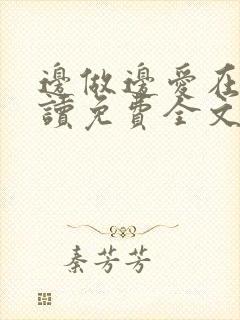 邊做邊愛在
讀免費全文
秦芳芳